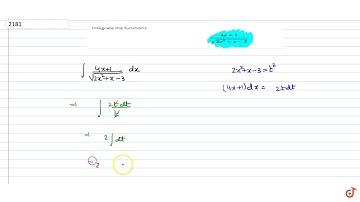 2181
Integrate the functions
4x+1 / √2x²+x-3
∫ 4x+1 / √2x²+x-3 dx
2x²+x-3=t²
(4x+1)dx = 2tdt
⇒ ∫ 2tdt / t
⇒ 2∫dt
= 2